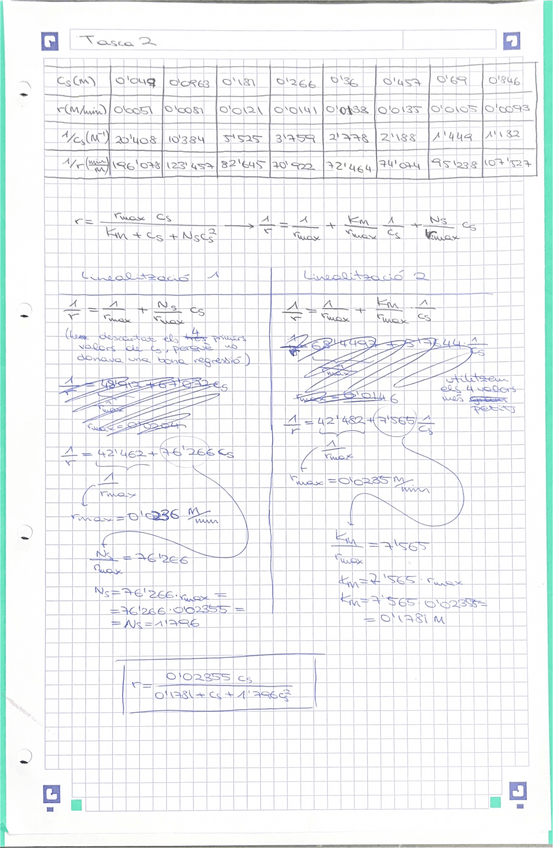 Tasca 2
Cs(M) 0'049 0'0963 0'181 0'266 0'36 0'457 0'69 0'846
r(M/min) 0'0051 0'0081 0'0121 0'0141 0'0138 0'0135 0'0105 0'0093
1/Cs(M⁻¹) 20'408 10'384 5'525 3'759 2'778 2'188 1'449 1'182
1/r (min/M) 196'078 123'457 82'645 70'922 72'464 74'074 95'238 107'527
r = rmax Cs / (KM + Cs + NsCs²) → 1/r = 1/rmax + KM/rmax 1/Cs + Ns/rmax Cs
Linealització 1
1/r = 1/rmax + Ns/rmax Cs
descartar els 4 primers
valors de Cs, perquè no
donava una bona regressió)
1/r = 42'462 + 76'266 Cs
1/rmax
rmax = 0'0236 M/min
Ns/rmax = 76'266
Ns = 76'266 · rmax =
= 76'266 · 0'02355 =
= Ns = 1'796
Linealització 2
1/r = 1/rmax + KM/rmax · 1/Cs
utilitzem
els 4 valors
més petits
1/r = 42'482 + 7'565 1/Cs
1/rmax
rmax = 0'0235 M/min
KM/rmax = 7'565
KM = 7'565 · rmax
KM = 7'565 · 0'02355 =
= 0'1781 M
r = 0'02355 Cs / (0'1781 + Cs + 1'796 Cs²)